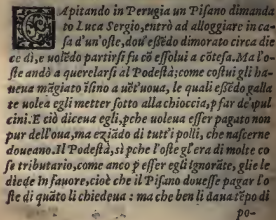 Capitando in Perugia un Pisano dimanda
to Luca Sergio, entrò ad alloggiare in ca-
sa d'un'oste, dou'essēdo dimorato circa die
ce dì, e uolēdo partirsi fu cō essolui a cōtesa. Ma l'o-
ste andò a querelarsi al Podestà; come costui gli ha-
ueua māgiato isino a uēt'uoua, le quali essēdo galla
te uolea egli metter sotto alla chioccia, p far de' pul
cini. E ciò diceua egli, pche uolena esser pagato non
pur dell'oua, ma eziādio di tutt'i polli, che nascerne
doueano. Il Podestà, sì pche l'oste gl'era di molte co
se tributario, come anco p esser egli ignorāte, glie le
diede in fauore, cioè che il Pisano douesse pagar l'o-
ste di quāto li chiedeua: ma che ben li daua tēpo di
po-